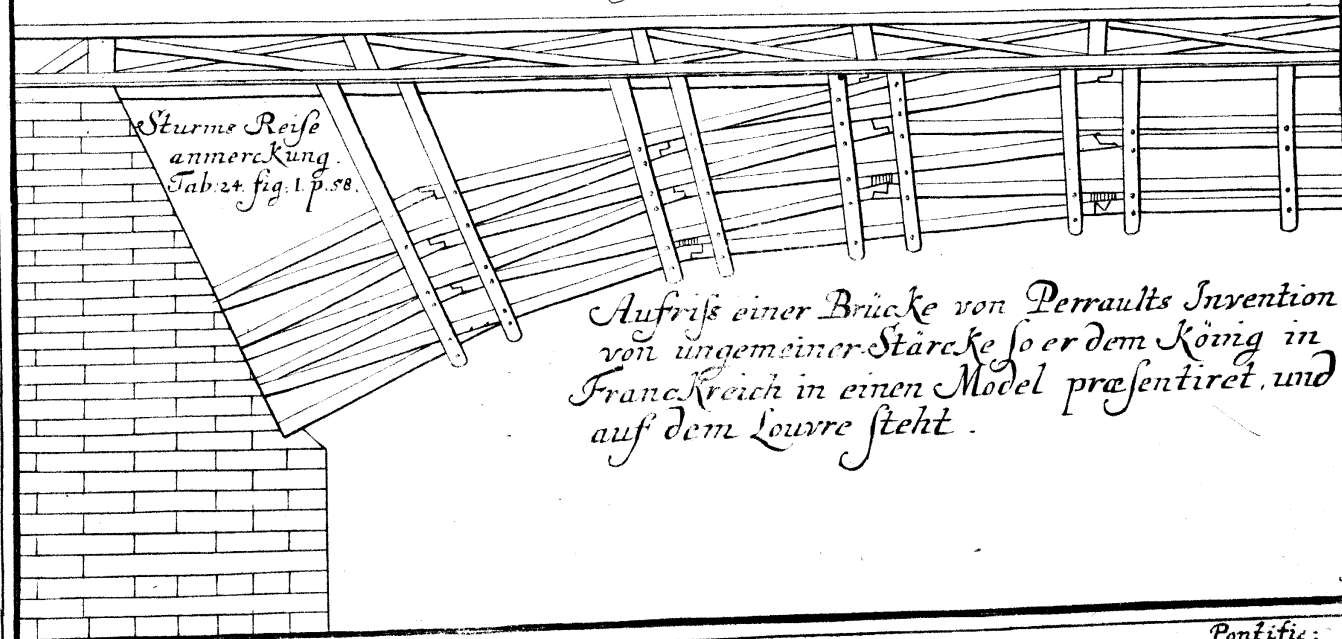 Sturms Reiſe
anmerckung.
Tab. 24. fig. 1. p. 58.
Aufriſs einer Brücke von Perraults Invention
von ungemeiner Stärcke ſo er dem Köinig in
Franckreich in einen Model præſentiret, und
auf dem Louvre ſteht.
Pontific: